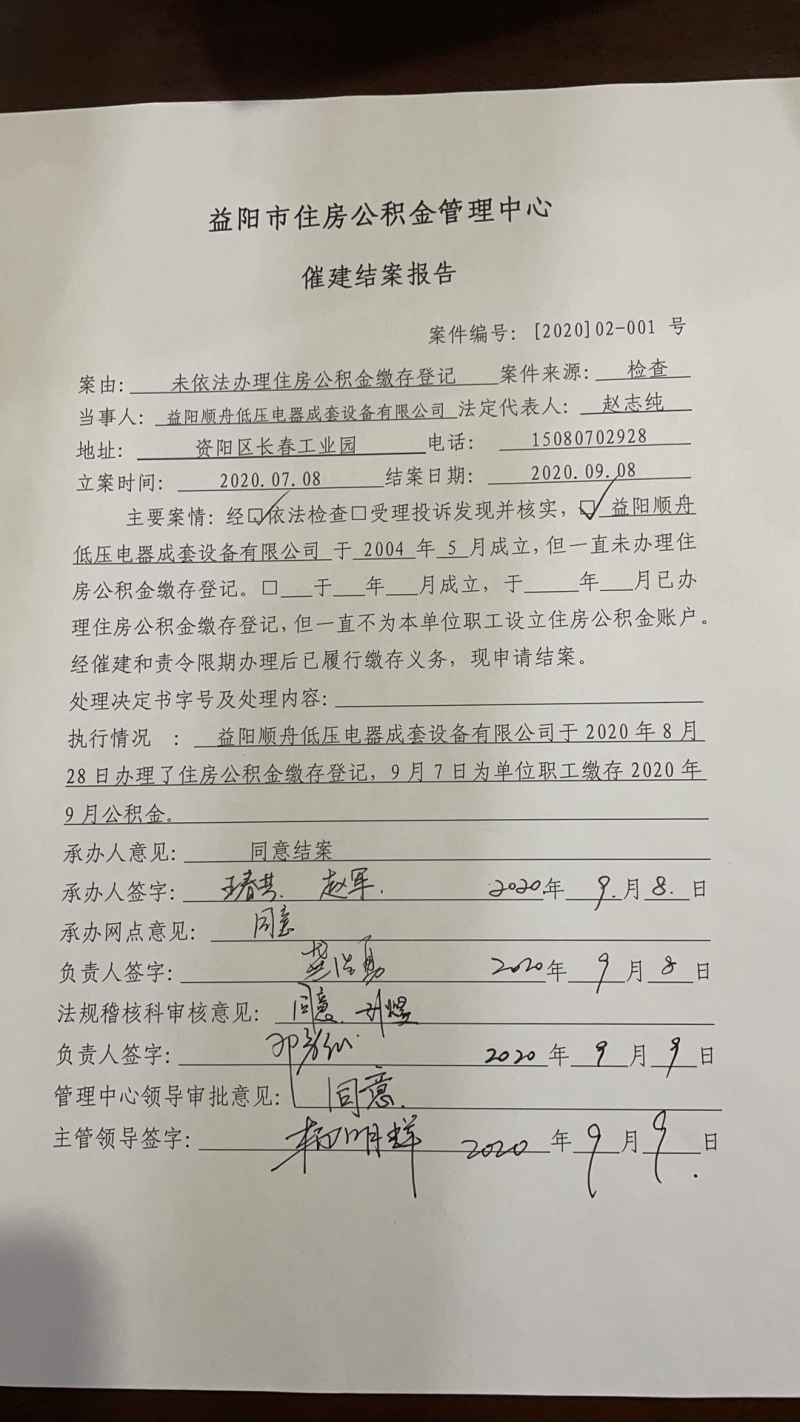 益阳市住房公积金管理中心
催建结案报告
案件编号：[2020]02-001 号
案由： 未依法办理住房公积金缴存登记 案件来源： 检查
当事人： 益阳顺舟低压电器成套设备有限公司 法定代表人： 赵志纯
地址： 资阳区长春工业园 电话： 15080702928
立案时间： 2020.07.08 结案日期： 2020.09.08
主要案情：经☑依法检查□受理投诉发现并核实，☑ 益阳顺舟
低压电器成套设备有限公司 于 2004 年 5 月成立，但一直未办理住
房公积金缴存登记。□___于___年___月成立，于_____年___月已办
理住房公积金缴存登记，但一直不为本单位职工设立住房公积金账户。
经催建和责令限期办理后已履行缴存义务，现申请结案。
处理决定书字号及处理内容：
执行情况 ： 益阳顺舟低压电器成套设备有限公司于 2020 年 8 月
28 日办理了住房公积金缴存登记，9 月 7 日为单位职工缴存 2020 年
9 月公积金。
承办人意见： 同意结案
承办人签字： 赵军. 2020年 9. 月 8. 日
承办网点意见： 同意
负责人签字： 2020年 9 月 8 日
法规稽核科审核意见： 同意.
负责人签字： 2020 年 9 月 9 日
管理中心领导审批意见： 同意.
主管领导签字： 2020 年 9 月 9 日